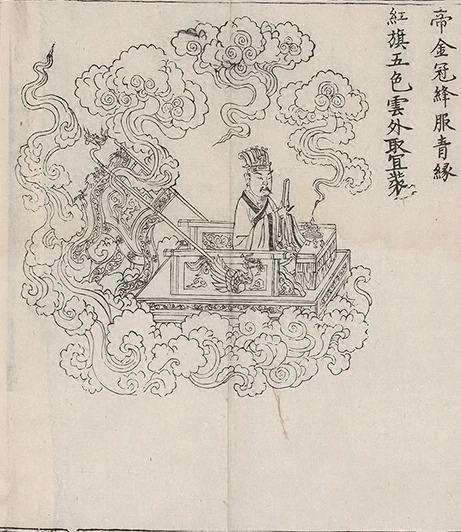 帝金冠絳服青緣
紅旗五色雲外取宜裝